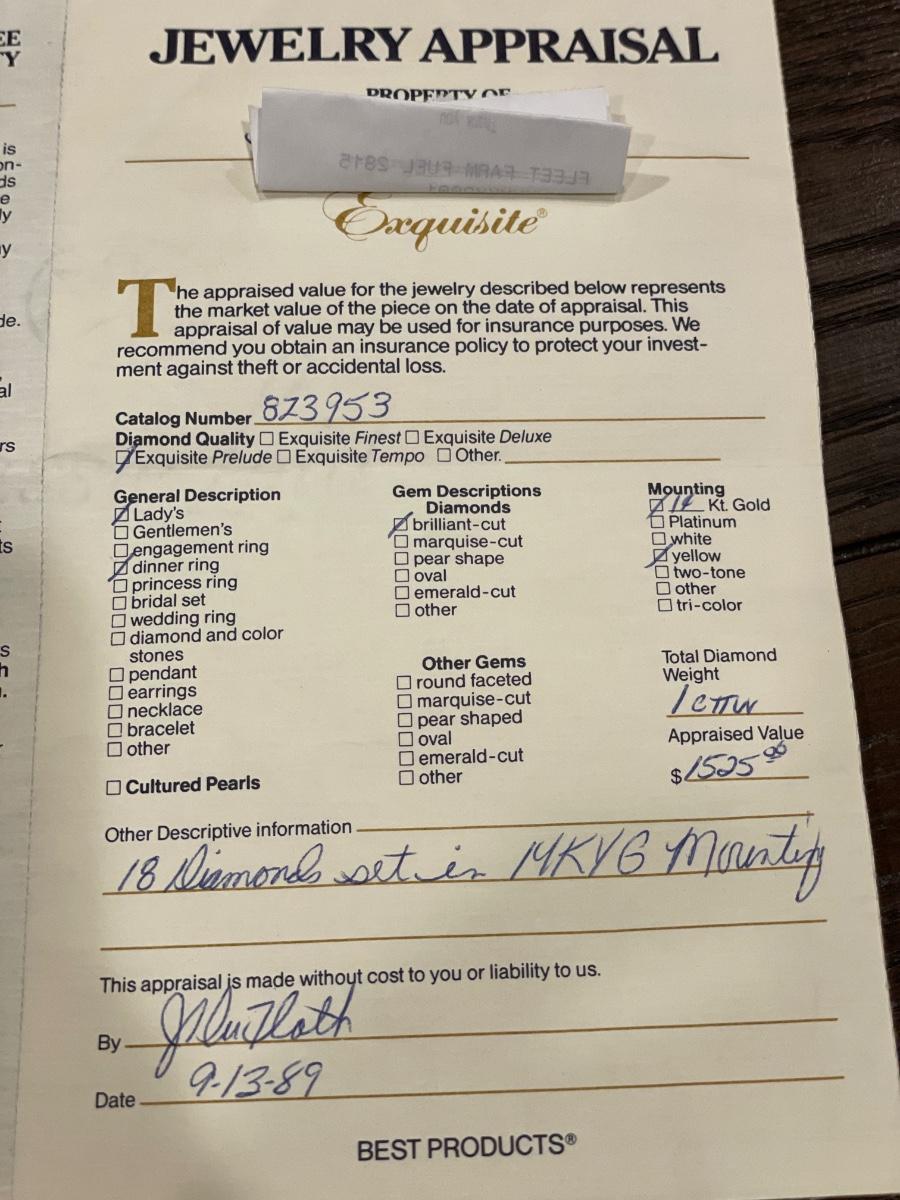 EE
TY
is
on-
ds
e
ly
ny
de.
al
rs
ts
s
h
JEWELRY APPRAISAL
PROPERTY OF
FLEET FARM FUEL 2815
Exquisite®
The appraised value for the jewelry described below represents
the market value of the piece on the date of appraisal. This
appraisal of value may be used for insurance purposes. We
recommend you obtain an insurance policy to protect your invest-
ment against theft or accidental loss.
Catalog Number 823953
Diamond Quality ☐ Exquisite Finest ☐ Exquisite Deluxe
☑ Exquisite Prelude ☐ Exquisite Tempo ☐ Other.
General Description
☑ Lady's
☐ Gentlemen's
☐ engagement ring
☑ dinner ring
☐ princess ring
☐ bridal set
☐ wedding ring
☐ diamond and color
stones
☐ pendant
☐ earrings
☐ necklace
☐ bracelet
☐ other
☐ Cultured Pearls
Gem Descriptions
Diamonds
☑ brilliant-cut
☐ marquise-cut
☐ pear shape
☐ oval
☐ emerald-cut
☐ other
Other Gems
☐ round faceted
☐ marquise-cut
☐ pear shaped
☐ oval
☐ emerald-cut
☐ other
Mounting
☑ 14 Kt. Gold
☐ Platinum
☐ white
☑ yellow
☐ two-tone
☐ other
☐ tri-color
Total Diamond
Weight
1 CTTW
Appraised Value
$1525 00
Other Descriptive information
18 Diamonds set in 14KYG Mounting
This appraisal is made without cost to you or liability to us.
By
Date 9-13-89
BEST PRODUCTS®